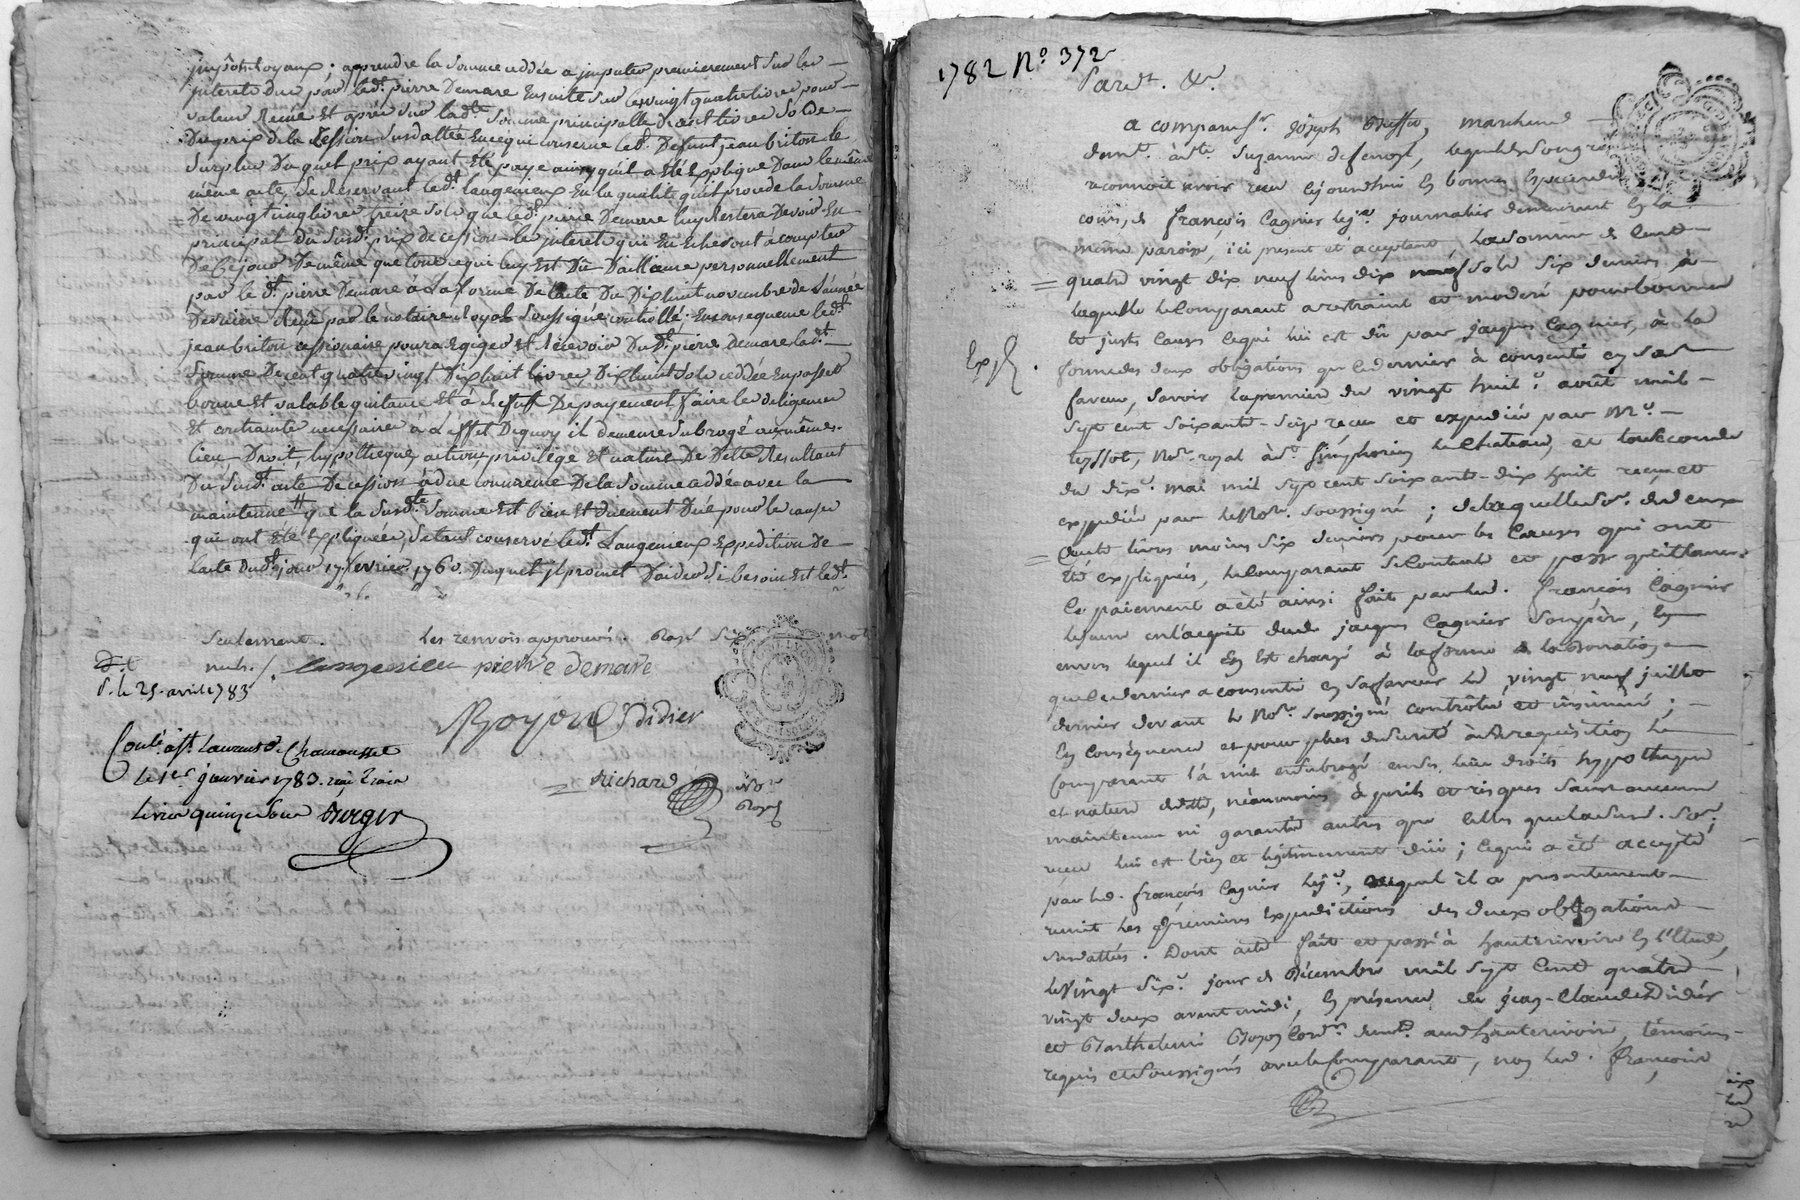 ; apprendre la somme ceddée a imputer premierement sur les
interets dus par led.t pierre Demare Ensuite sur les vingt quatre livres pour
valeur Et après sur lad.te somme principalle livres solde
Du prix de la Cession susdattée Led.t Deffunt jean briton le
Surplus Duquel prix ayant été payé ainsy quil a été Expliqué Dans le même
même acte, se Réservant led.t Langenieux En la qualité quil procede la somme
De vingt cinq livres treize sols que led.t pierre Demare luy Restera Devoir En
principal du Susd.t prix de cession les interets qui En Echeront à compter
De Ce jour De même que tout ce qui luy Est Dû D'ailleurs personnellement
par le d.t pierre Demare à La forme De l'acte Du Dix huit novembre de L'année
Derniere Reçu par le notaire Royal Soussigné controllé ; En consequence led.t
jean briton cessionnaire pourra Exiger et Recevoir Dud.t pierre Demare lad.te
Somme De cent quatre vingt Dix huit livres Dix huit sols ceddée En passer
bonne et valable quitance Et à deffaut De payement faire les diligences
Et contrainte necessaires a L'effet De quoy il demeure Subrogé aux mêmes
lieu, Droit, hypotheque, action, privilége Et nature De Dette Resultant
Du Susd.t acte De cession à due concurence De la Somme ceddée avec la
maintenue que la Susd.te Somme Est bien Et duement Düe pour les causes
qui ont été Expliquées, Setant conservé led.t Langenieux Expedition De
l'acte dud.t jour 17 fevrier 1760. Duquel il promet D'aider Si besoin Est led.t
Seulement. Les renvois approuvés. Rayé Six mots
nuls. Langenieu pierre demare
S. le 25. avril 1783
Royon Didier
Conlé à St Laurent de Chamousset
le 1er janvier 1783. reçu trois
livres quinze sous Berger
Richard No.re
Royal
1782 N.o 372
Pard.t &.
a comparu s.r Joseph marchand
dem.t à St. Suzanne lequel de son gré
reconnoit avoir reçu cejourdhui en bonnes Especes de
cours, de françois Cagnier le j.e journalier demeurant En la
même paroisse, ici présent et acceptant la somme de Cent
quatre vingt dix neuf livres dix neuf sols six deniers à
laquelle le Comparant a restraint et moderé pour bonnes
et justes Causes ce qui lui est dû par jacques Cagnier, à la
Exp.é.
forme des deux obligations que ce dernier à consenti en sa
faveur, savoir la premiere du vingt huit août mil
sept cent soixante-seize reçue et expediée par M.e
tyssot, No.re royal à St. Simphorien le Chateau, et la seconde
du dix mai mil sept cent soixante-dix huit reçue et
expediée par le No.re soussigné ; de laquelle So.e de deux
Cents livres moins six deniers pour les Causes qui ont
Eté expliquées, le Comparant se Contente et passe quittance
le paiement a été ainsi fait par led. françois Cagnier
le jeune en l'acquit dud. jacques Cagnier son père, En
envers lequel il En Est chargé à la forme de la Donation
que ce dernier a consentie en sa faveur le vingt neuf juillet
dernier devant le No.re soussigné controlée et insinuée ;
En Conséquence et pour plus de sureté à sa requisition le
Comparant l'à mis et subrogé en ses lieu droits hypotheque
et nature de dette, néanmoins à perils et risques sans aucune
maintenue ni garantie autres que Celles que la susd. So.e
reçue lui est bien et légitimement düe ; ce qui a été accepté
par led. françois Cagnier le j.e, auquel il a présentement
remis les premieres Expeditions des deux obligations
susdattées. Dont acte fait et passé à hauterivoire En l'Etude,
le vingt six.e jour de Décembre mil sept Cent quatre
vingt deux avant midi, En présence de jean-Claude Didier
et Barthelemi Royon Cord.r dem.t aud. hauterivoire, témoins
requis et Soussignés avec le Comparant, non led. françois